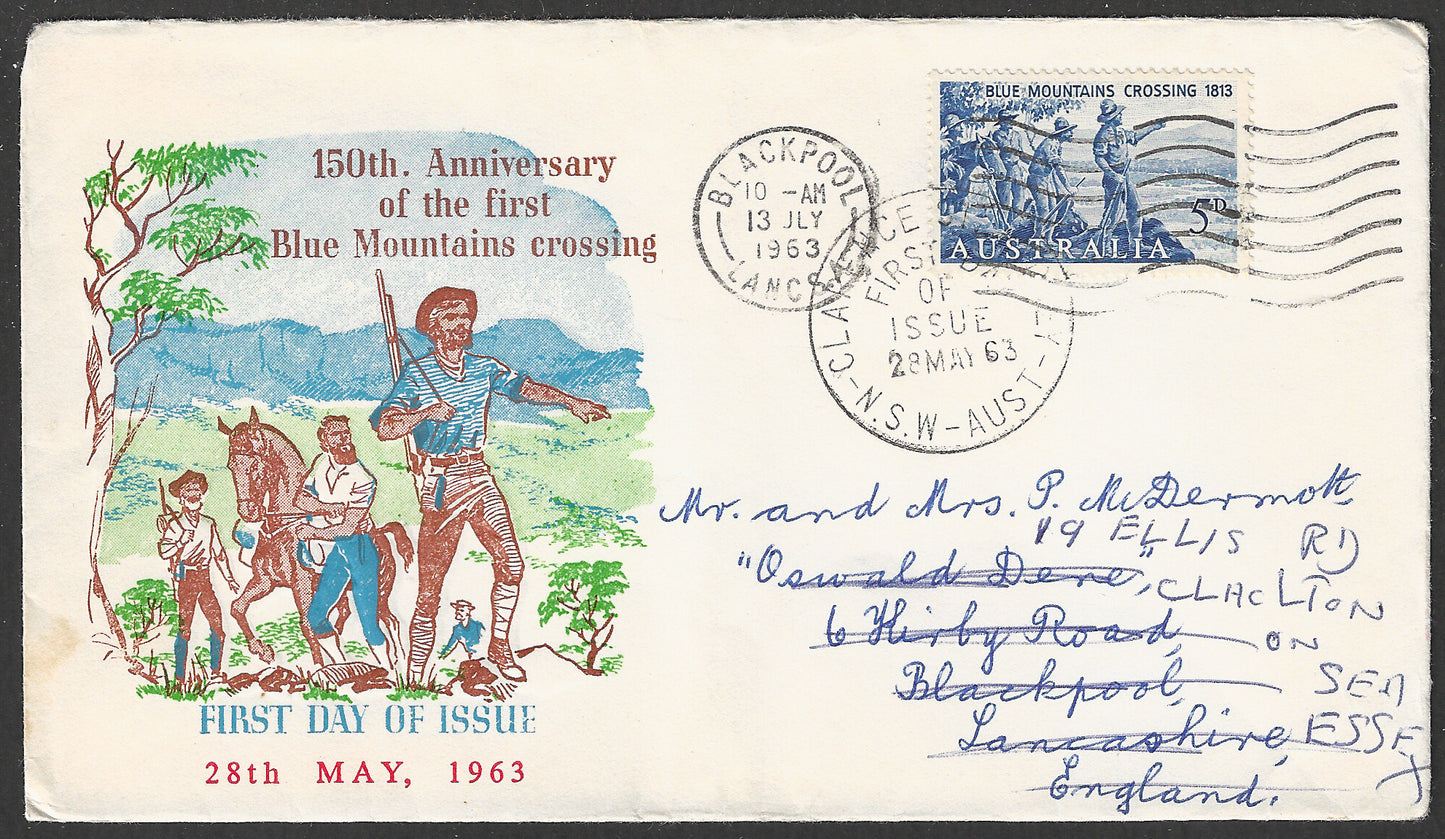 150th. Anniversary
of the first
Blue Mountains crossing
FIRST DAY OF ISSUE
28th MAY, 1963
BLACKPOOL
10 - AM
13 JLY
1963
LANCS
BLUE MOUNTAINS CROSSING 1813
5D
AUSTRALIA
FIRST DAY
OF
ISSUE
28 MAY 63
N.S.W - AUST
Mr. and Mrs. P. McDermott
19 ELLIS RD
"Oswald Dene",
CLACLTON
6 Kirby Road,
ON
Blackpool,
SEA
Lancashire,
ESSEX
England.